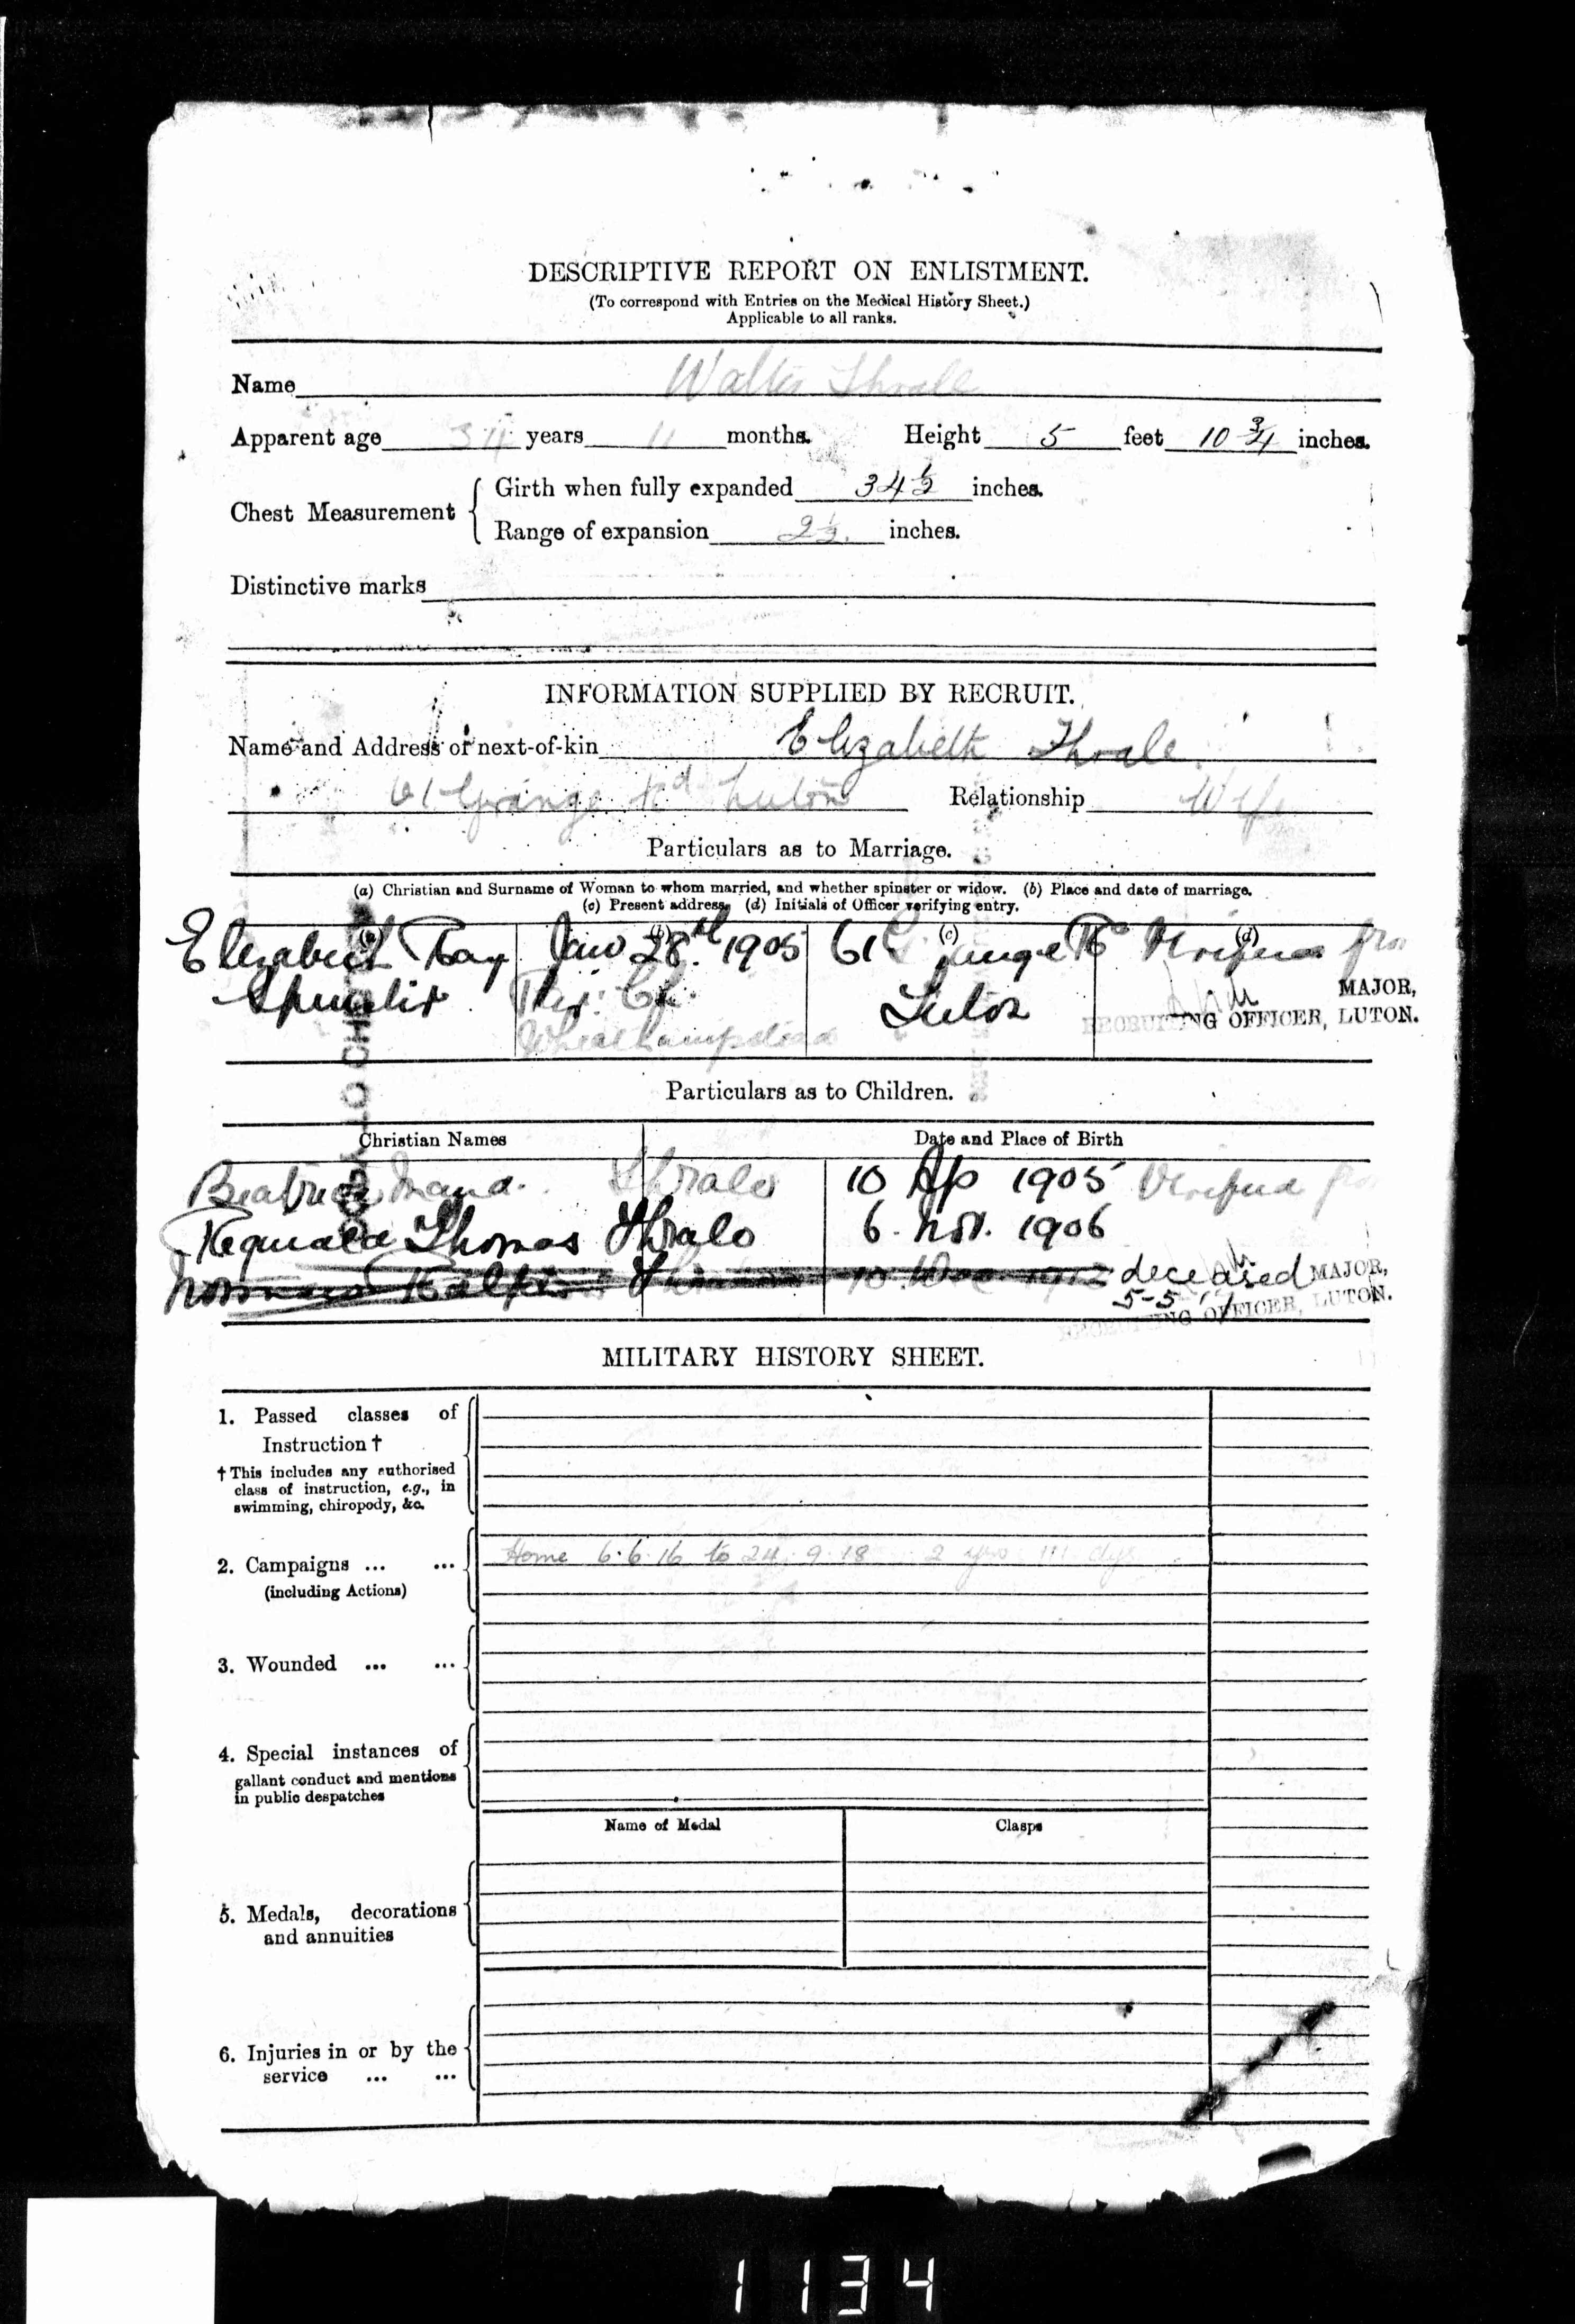 DESCRIPTIVE REPORT ON ENLISTMENT.
(To correspond with Entries on the Medical History Sheet.)
Applicable to all ranks.
Name Walter Thrale
Apparent age 34 years 11 months. Height 5 feet 10 3/4 inches.
Chest Measurement { Girth when fully expanded 34 1/2 inches.
Range of expansion 2 1/2. inches.
Distinctive marks
INFORMATION SUPPLIED BY RECRUIT.
Name and Address of next-of-kin Elizabeth Thrale
61 Grange Rd Luton Relationship Wife
Particulars as to Marriage.
(a) Christian and Surname of Woman to whom married, and whether spinster or widow. (b) Place and date of marriage.
(c) Present address. (d) Initials of Officer verifying entry.
(a) (b) (c) (d)
Elizabeth Ray Jan 28th 1905 61 Grange Rd Verified from
Spinster Luton MAJOR,
Wheathampstead RECRUITING OFFICER, LUTON.
Particulars as to Children.
Christian Names Date and Place of Birth
Beatrice Maud. Thrale 10 Ap 1905 Verified from
Reginald Thomas Thrale 6. Nov. 1906
Norman Ralph 1912 deceased MAJOR,
5-5 RECRUITING OFFICER, LUTON.
MILITARY HISTORY SHEET.
1. Passed classes of
Instruction †
† This includes any authorised
class of instruction, e.g., in
swimming, chiropody, &c.
2. Campaigns ... ... Home 6.6.16 to 24.9.18 2 yrs 111 dys
(including Actions)
3. Wounded ... ...
4. Special instances of
gallant conduct and mentions
in public despatches
Name of Medal Clasps
5. Medals, decorations
and annuities
6. Injuries in or by the
service ... ...
1134